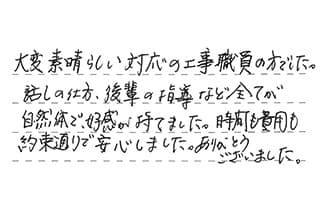 大変素晴らしい対応の工事職員の方でした。
話しの仕方、後輩の指導など全てが
自然体で、好感が持てました。時間も費用も
約束通りで安心しました。ありがとう
ございました。